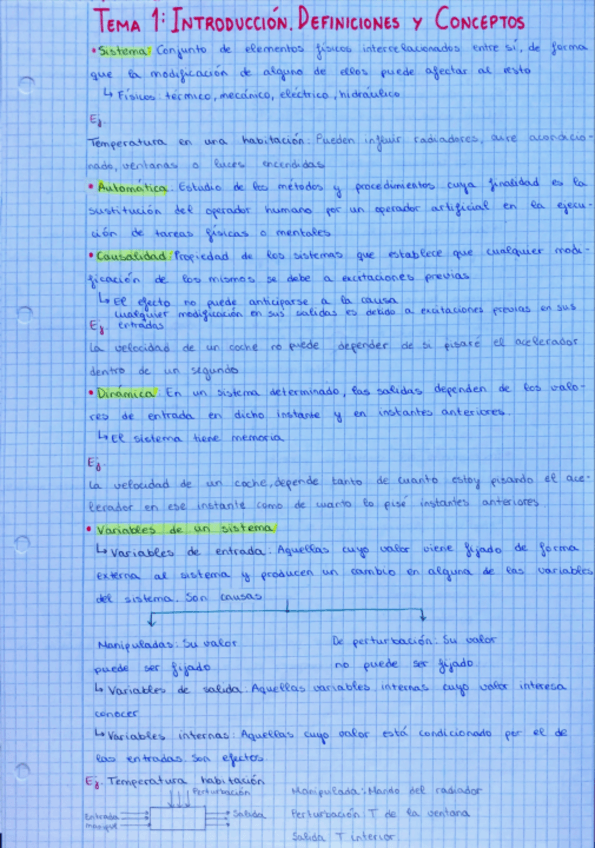 TEMA 1: INTRODUCCIÓN. DEFINICIONES Y CONCEPTOS
• Sistema: Conjunto de elementos físicos interrelacionados entre sí, de forma
que la modificación de alguno de ellos puede afectar al resto
↳ Físicos: térmico, mecánico, eléctrico, hidráulico
Ej.
Temperatura en una habitación. Pueden influir radiadores, aire acondicio-
nado, ventanas o luces encendidas
• Automática: Estudio de los métodos y procedimientos cuya finalidad es la
sustitución del operador humano por un operador artificial en la ejecu-
ción de tareas físicas o mentales
• Causalidad: Propiedad de los sistemas que establece que cualquier modi-
ficación de los mismos se debe a excitaciones previas
↳ El efecto no puede anticiparse a la causa
cualquier modificación en sus salidas es debido a excitaciones previas en sus
Ej. entradas
La velocidad de un coche no puede depender de si pisaré el acelerador
dentro de un segundo
• Dinámica: En un sistema determinado, las salidas dependen de los valo-
res de entrada en dicho instante y en instantes anteriores.
↳ El sistema tiene memoria
Ej.
La velocidad de un coche, depende tanto de cuanto estoy pisando el ace-
lerador en ese instante como de cuanto lo pisé instantes anteriores.
• Variables de un sistema
↳ Variables de entrada: Aquellas cuyo valor viene fijado de forma
externa al sistema y producen un cambio en alguna de las variables
del sistema. Son causas
Manipuladas: Su valor De perturbación: Su valor
puede ser fijado no puede ser fijado
↳ Variables de salida: Aquellas variables internas cuyo valor interesa
conocer
↳ Variables internas: Aquellas cuyo valor está condicionado por el de
las entradas. Son efectos.
Ej. Temperatura habitación
Perturbación Manipulada: Mando del radiador
Entrada Salida Perturbación T de la ventana
manipul
Salida T interior